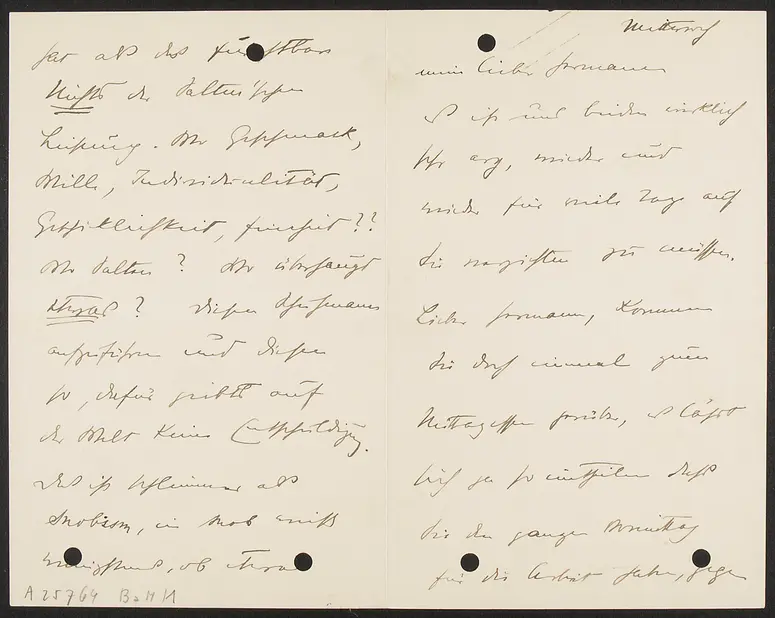 hat als das furchtbare
Nichts der Salten'schen
Leistung. Wo Geschmack,
Wille, Individualität,
Geschicklichkeit, Feinheit??
Wo Salten? Wo überhaupt
etwas? Diesen
aufzuführen und diesen
so, dafür gibts auf
der Welt keine Entschuldigung.
Das ist schlimmer als
Snobism, ein Snob weiß
wenigstens, ob etwas
A 25764 BaM
Mittwoch
mein lieber Hermann
es ist uns beiden wirklich
sehr arg, wieder und
wieder für viele Tage auf
Sie verzichten zu müssen.
Lieber Hermann, kommen
Sie doch einmal zum
Mittagessen herüber, es läßt
sich ja so eintheilen daß
Sie den ganzen Vormittag
für die Arbeit haben, gegen